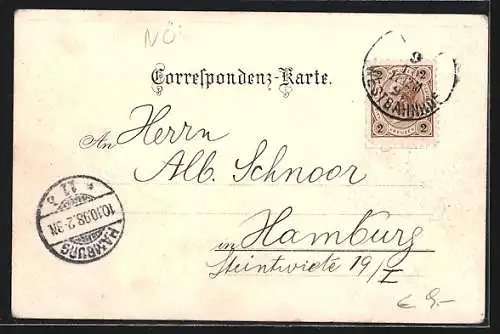 NÖ
Correspondenz-Karte.
2 2
WESTBAHNHOF
An Herrn
Alb. Schnoor
in Hamburg
Steintwiete 19/I
* 11 a
10.10.98.2-3N
HAMBURG
€ 9,-